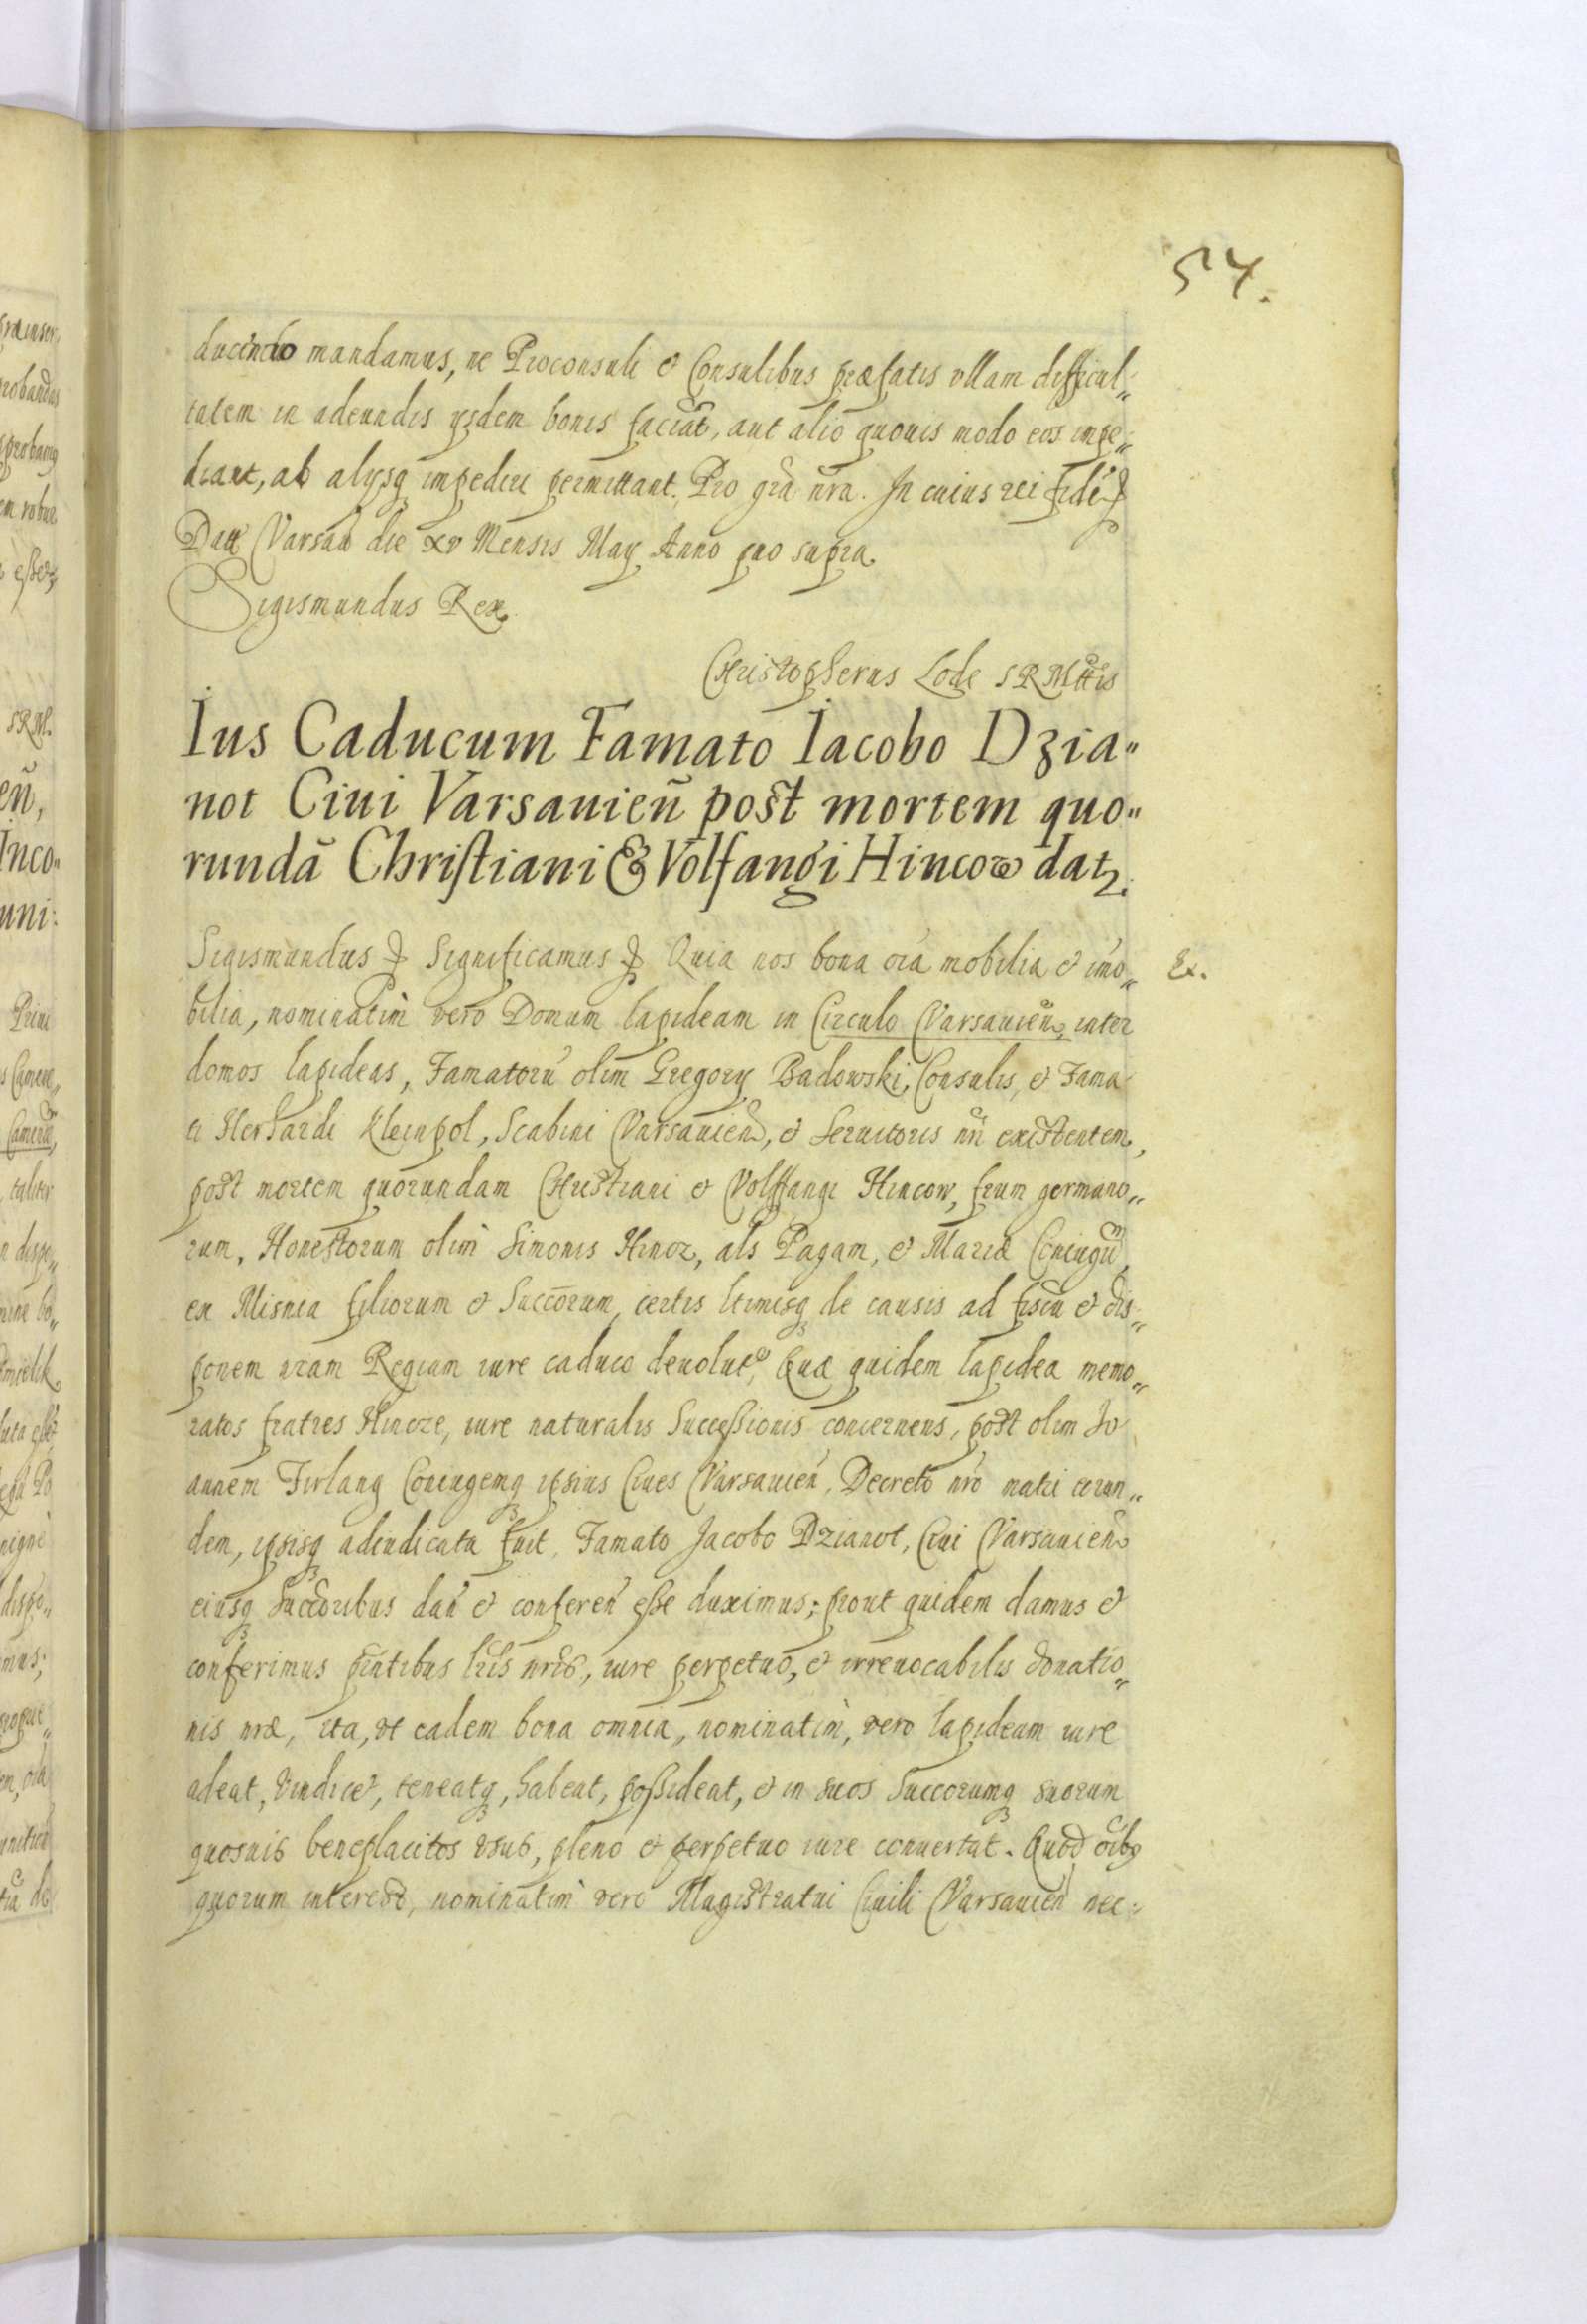 54.
ducendo mandamus, ne Proconsuli et Consulibus præfatis vllam difficul„
tatem in adeundis ijsdem bonis faciāt, aut alio quouis modo eos impe„
diant, ab alijsq̃ impediri permittant. Pro grã nr̃a. In cuius rei fidē ꝛc
Datt Varsau die xv Mensis Maij Anno quo supra
Sigismundus Rex.
Christopherus Lode SRMttis
Ius Caducum Famato Iacobo Dzia„
not Ciui Varsauień post mortem quo„
rundã Christiani & Volfangi Hincow datz.
Sigismundus ꝛc Significamus ꝛc Quia nos bona oĩa mobilia et imo„
Ex.
bilia, nominatim vero Domum lapideam in Circulo Varsauień, inter
domos lapideas, Famatorũ olim Gregorij Badowski, Consulis, et Fama
ti Herhardi Kleinpol, Scabini Varsauień, et Seruitoris nr̃i existentem,
post mortem quorundam Christiani et Volffangi Hincow, fr̃um germano„
rum, Honestorum olim Simonis Hincz, als Pagam, et Mariæ Coniugũ
ex Misnia filiorum et Succorum, certis ltimisq̃ de causis ad fiscũ et dis„
ponem nr̃am Regiam iure caduco deuoluta, Quæ quidem lapidea memo„
ratos fratres Hincze, iure naturalis Successionis concernens, post olim Jo
annem Firlang Coniugemq̃ ipsius Ciues Varsauień, Decreto nr̃o matri eorun„
dem, ipsisq̃ adiudicata fuit, Famato Jacobo Dzianot, Ciui Varsauień
eiusq̃ Succoribus dań et confereń esse duximus; prout quidem damus et
conferimus pñtibus lr̃is nr̃is, iure perpetuo, et irreuocabilis donatio„
nis nr̃æ, ita, vt eadem bona omnia, nominatim, vero lapideam iure
adeat, vindicet, teneatq̃, habeat, possideat, et in suos Succorumq̃ suorum
quosuis beneplacitos vsus, pleno et perpetuo iure conuertat. Quod oĩbus
quorum interest, nominatim vero Magistratui Ciuili Varsauień nec„